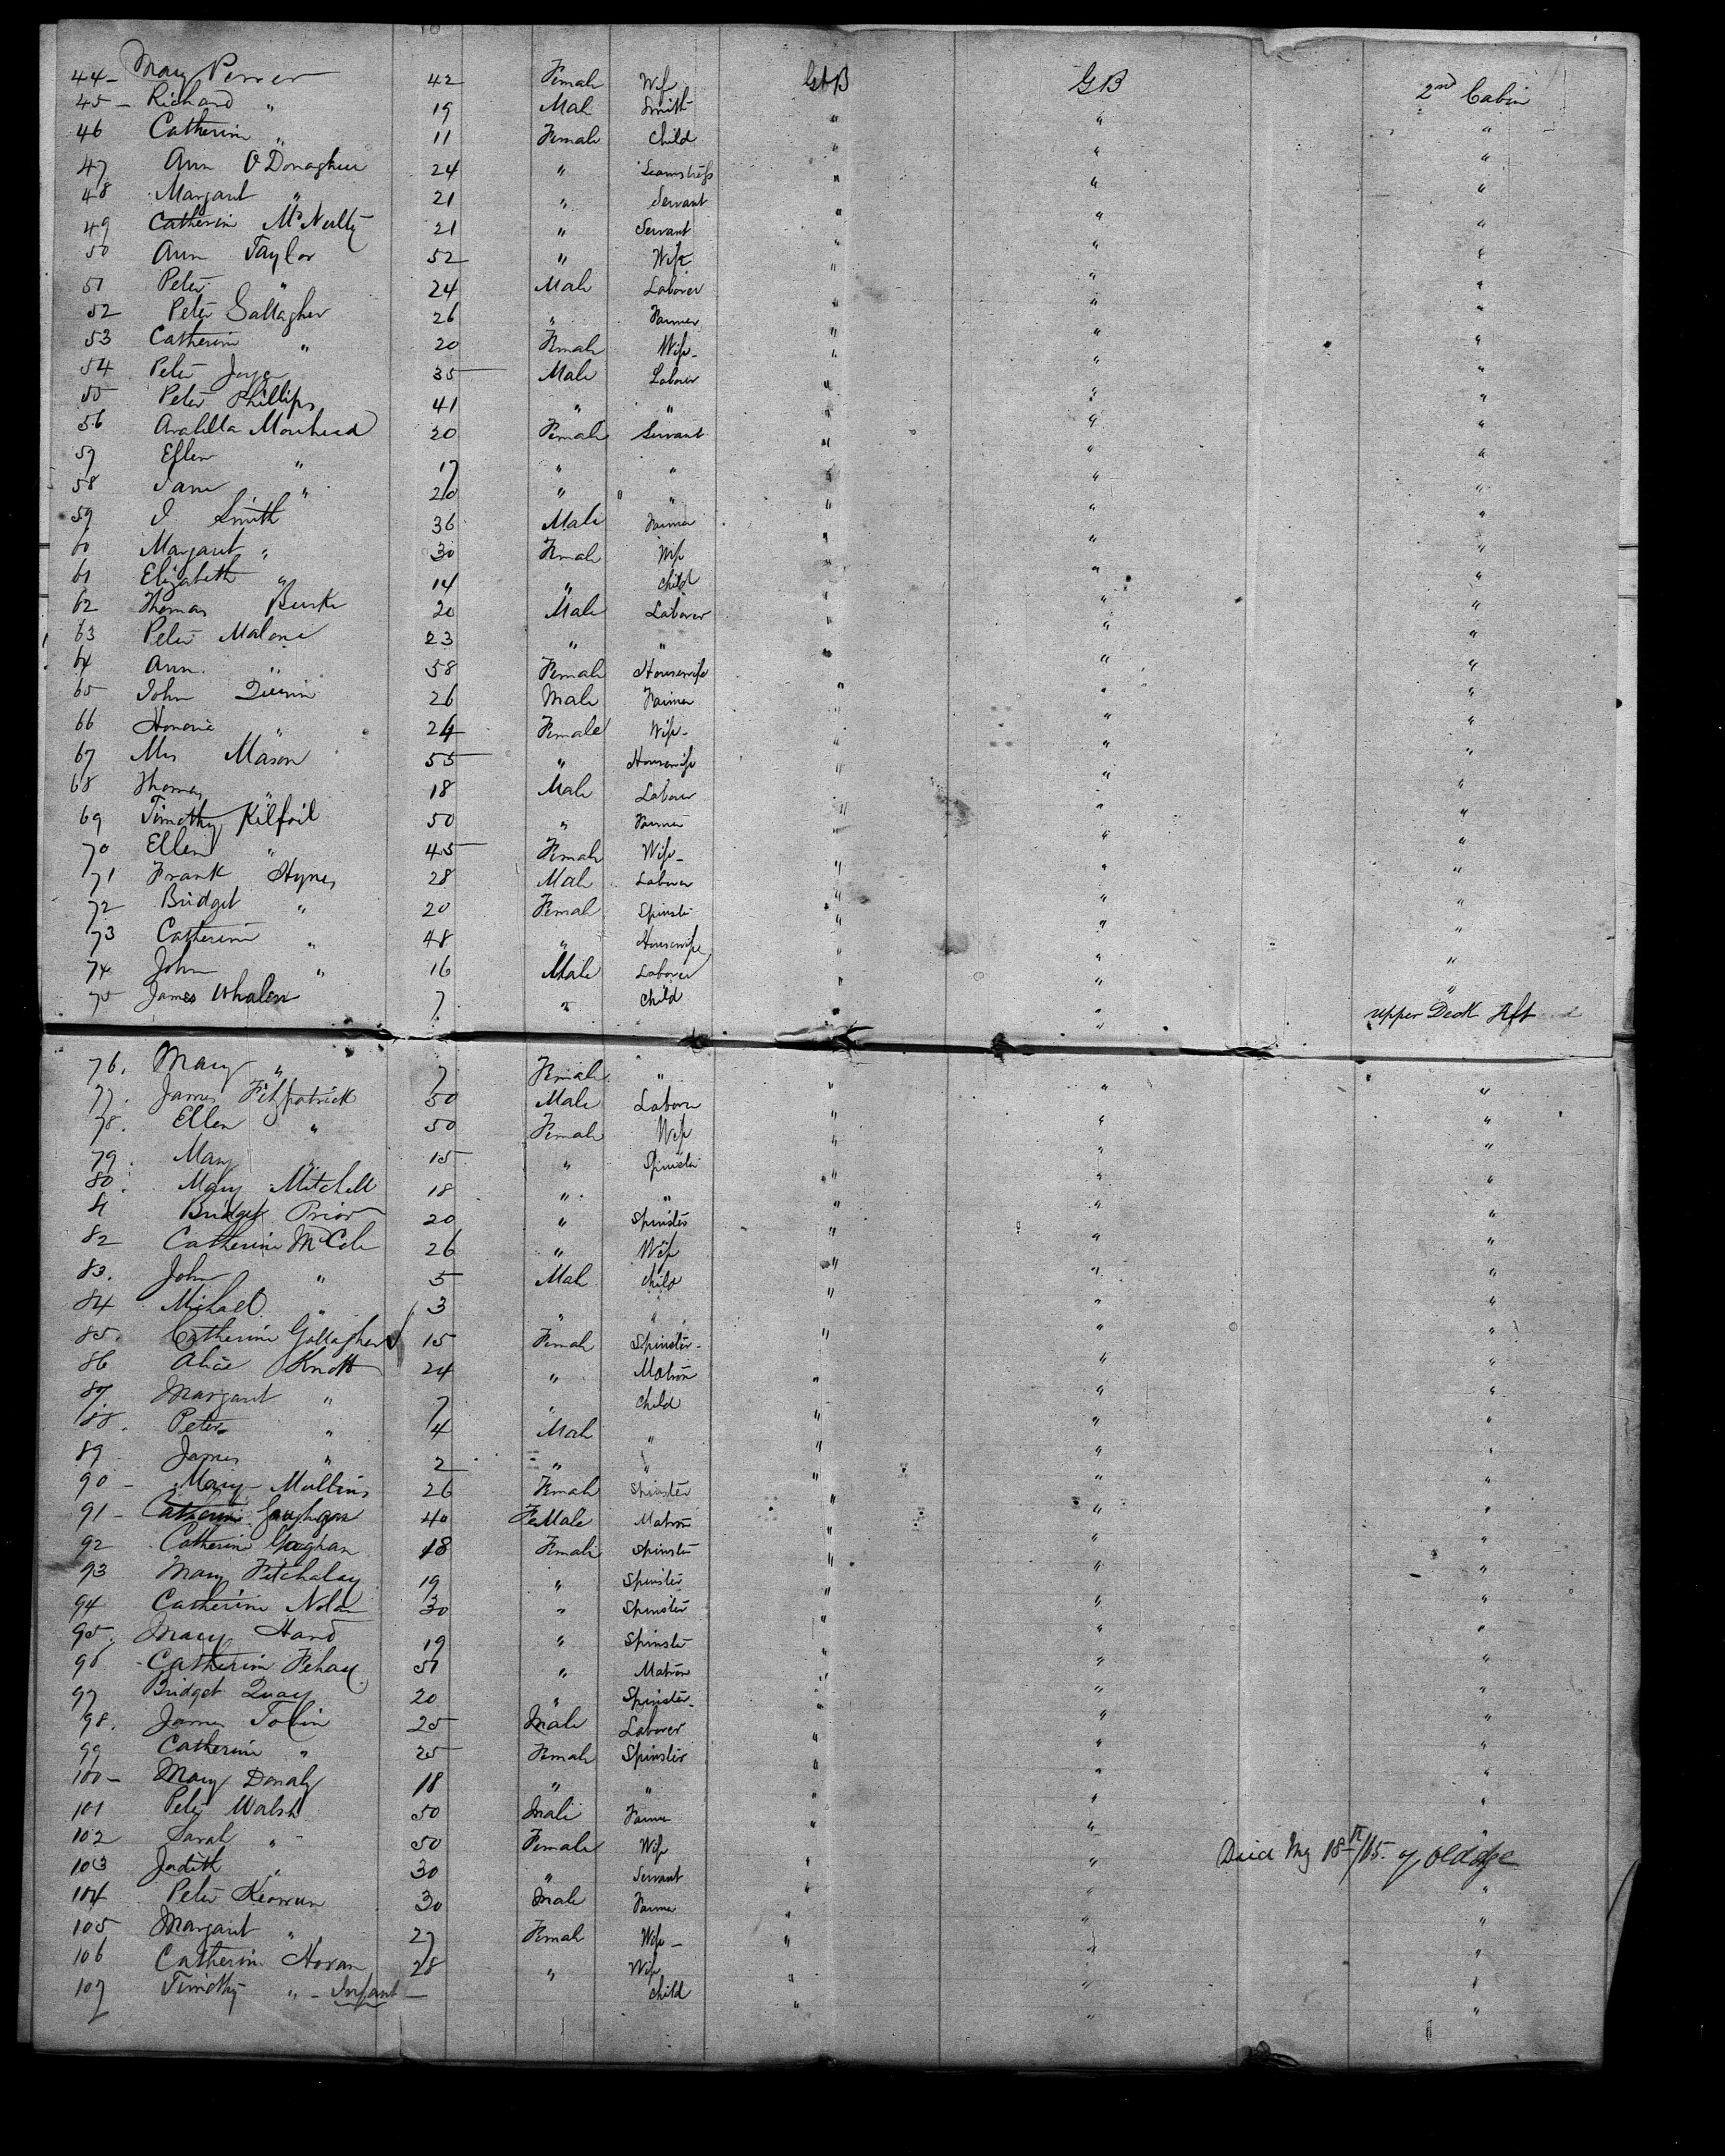 44 - Mary Perrer 42 Female Wife GtB GB 2nd Cabin
45 - Richard " 19 Male Smith " " "
46 Catherine " 11 Female Child " " "
47 Ann O'Donaghue 24 " Seamstress " " "
48 Margaret " 21 " Servant " " "
49 Catherine McNulty 21 " Servant " " "
50 Ann Taylor 52 " Wife " " "
51 Peter " 24 Male Laborer " " "
52 Peter Gallagher 26 " Farmer " " "
53 Catherine " 20 Female Wife - " " "
54 Peter Joyce 35 Male Laborer " " "
55 Peter Phillips 41 " " " " "
56 Arabella Morehead 20 Female Servant " " "
57 Ellen " 17 " " " " "
58 Jane " 20 " " " " "
59 J Smith 36 Male Farmer " " "
60 Margaret " 30 Female Wife " " "
61 Elizabeth " 14 " Child " " "
62 Thomas Burke 20 Male Laborer " " "
63 Peter Malone 23 " " " " "
64 Ann " 58 Female Housewife " " "
65 John Quinn 26 Male Farmer " " "
66 Honoria " 24 Female Wife - " " "
67 Mrs Mason 55 " Housewife " " "
68 Thomas " 18 Male Laborer " " "
69 Timothy Kilfoil 50 " Farmer " " "
70 Ellen " 45 Female Wife - " " "
71 Frank Hynes 28 Male Laborer " " "
72 Bridget " 20 Female Spinster " " "
73 Catherine " 48 " Housewife " " "
74 John " 16 Male Laborer " " "
75 James Whalen 7 " Child " " Upper Deck Aft
76. Mary " 7 Female " " " "
77. James Fitzpatrick 50 Male Laborer " " "
78. Ellen " 50 Female Wife " " "
79. Mary " 15 " Spinster " " "
80. Mary Mitchell 18 " " " " "
81 Bridget Prior 20 " Spinster " " "
82 Catherine McCole 26 " Wife " " "
83. John " 5 Male Child " " "
84 Michael " 3 " " " " "
85. Catherine Gallagher 15 Female Spinster - " " "
86 Alice Knott 24 " Matron " " "
87 Margaret " 7 " Child " " "
88. Peter " 4 Male " " " "
89 James " 2 " " " " "
90 - Mary Mullins 26 Female Spinster " " "
91 - Catherine Gaughgan 40 FeMale Matron " " "
92 Catherine Gaughan 18 Female Spinster " " "
93 Mary 19 " Spinster " " "
94 Catherine Nolan 30 " Spinster " " "
95. Mary Hand 19 " Spinster " " "
96 - Catherine 51 " Matron " " "
97 Bridget Quay 20 " Spinster " " "
98. James Tobin 25 Male Laborer " " "
99 Catherine " 25 Female Spinster " " "
100 - Mary 18 " " " " "
101 Peter Walsh 50 Male Farmer " " "
102 Sarah " 50 Female Wife " " "
103 Judith " 30 " Servant " " Died My 18th/65. of old age
104 Peter 30 Male Farmer " " "
105 Margaret " 27 Female Wife - " " "
106 Catherine Horan 28 " Wife " " "
107 Timothy " - Infant - Child " " "